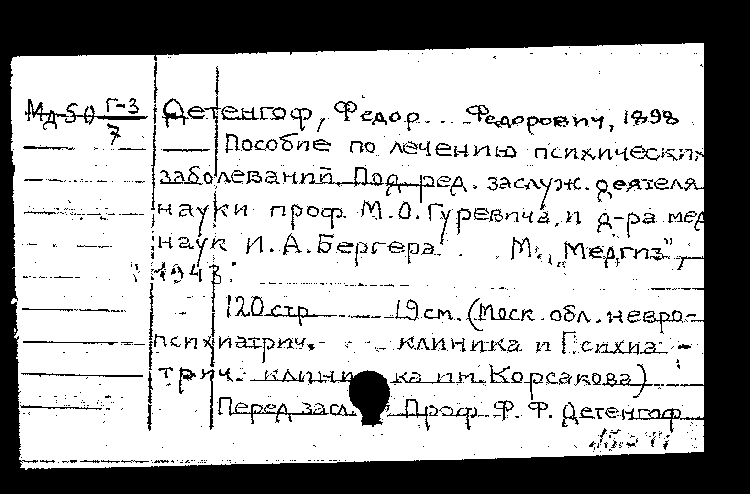 Мд-50 Г-3/7 Детенгоф, Федор Федорович, 1898
Пособие по лечению психических
заболеваний. Под ред. заслуж. деятеля
науки проф. М.О. Гуревича, и д-ра мед
наук И.А. Бергера М., „Медгиз",
1943.
120 стр 19 см. (Моск. обл. невро-
психиатрич. клиника и Психиа-
трич. клиника им. Корсакова)
Перед засл. Проф Ф. Ф. Детенгоф